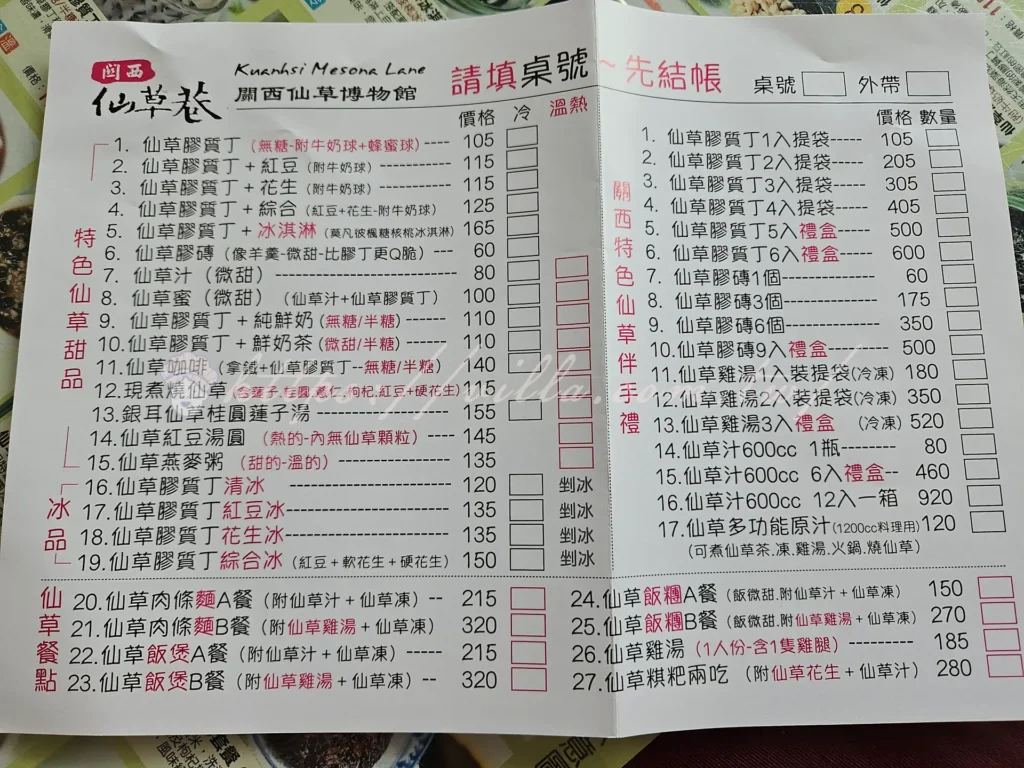 關西
仙草巷
Kuanhsi Mesona Lane
關西仙草博物館
請填桌號~先結帳
桌號 外帶
價格 冷 溫熱
特色仙草甜品
1. 仙草膠質丁(無糖-附牛奶球+蜂蜜球)---- 105
2. 仙草膠質丁+紅豆(附牛奶球)------------ 115
3. 仙草膠質丁+花生(附牛奶球)------------ 115
4. 仙草膠質丁+綜合(紅豆+花生-附牛奶球) 125
5. 仙草膠質丁+冰淇淋(莫凡彼楓糖核桃冰淇淋) 165
6. 仙草膠磚(像羊羹-微甜-比膠丁更Q脆)--- 60
7. 仙草汁(微甜)--------------------------- 80
8. 仙草蜜(微甜)(仙草汁+仙草膠質丁) 100
9. 仙草膠質丁+純鮮奶(無糖/半糖)------ 110
10.仙草膠質丁+鮮奶茶(微甜/半糖)------ 110
11.仙草咖啡(拿鐵+仙草膠質丁--無糖/半糖) 140
12.現煮燒仙草 115
13.銀耳仙草桂圓蓮子湯------------------ 155
14.仙草紅豆湯圓 (熱的-內無仙草顆粒)---- 145
15.仙草燕麥粥 (甜的-溫的)-------------- 135
冰品
16.仙草膠質丁清冰 ---------------------- 120 剉冰
17.仙草膠質丁紅豆冰--------------------- 135 剉冰
18.仙草膠質丁花生冰--------------------- 135 剉冰
19.仙草膠質丁綜合冰(紅豆+軟花生+硬花生) 150 剉冰
仙草餐點
20.仙草肉條麵A餐(附仙草汁+仙草凍)-- 215
21.仙草肉條麵B餐(附仙草雞湯+仙草凍) 320
22.仙草飯煲A餐(附仙草汁+仙草凍)----- 215
23.仙草飯煲B餐(附仙草雞湯+仙草凍)-- 320
價格 數量
關西特色仙草伴手禮
1. 仙草膠質丁1入提袋----- 105
2. 仙草膠質丁2入提袋----- 205
3. 仙草膠質丁3入提袋----- 305
4. 仙草膠質丁4入提袋----- 405
5. 仙草膠質丁5入禮盒----- 500
6. 仙草膠質丁6入禮盒----- 600
7. 仙草膠磚1個-------------- 60
8. 仙草膠磚3個-------------- 175
9. 仙草膠磚6個-------------- 350
10.仙草膠磚9入禮盒--------- 500
11.仙草雞湯1入裝提袋(冷凍) 180
12.仙草雞湯2入裝提袋(冷凍) 350
13.仙草雞湯3入禮盒 (冷凍) 520
14.仙草汁600cc 1瓶-------- 80
15.仙草汁600cc 6入禮盒-- 460
16.仙草汁600cc 12入一箱 920
17.仙草多功能原汁(1200cc料理用)120
(可煮仙草茶.凍.雞湯.火鍋.燒仙草)
24.仙草飯糰A餐(飯微甜.附仙草汁+仙草凍) 150
25.仙草飯糰B餐(飯微甜.附仙草雞湯+仙草凍) 270
26.仙草雞湯 (1人份-含1隻雞腿)------- 185
27.仙草粿粑兩吃 (附仙草花生+仙草汁) 280